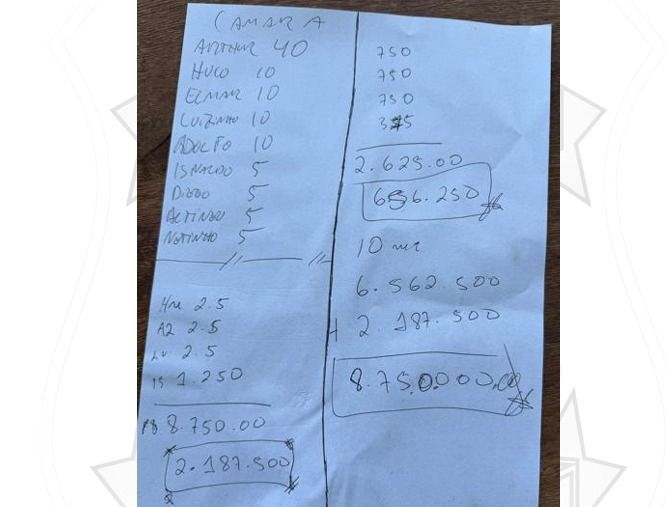 CAMARA
ARTHUR 40
HUGO 10
ELMAR 10
LUIZINHO 10
ADOLFO 10
ISNALDO 5
DIEGO 5
ALTINEU 5
NETINHO 5
2.5
A2 2.5
LU 2.5
IS 1.250
8.750.00
2.187.500
750
750
750
375
2.625.00
656.250
10
6.562.500
2.187.500
8.750.000,00